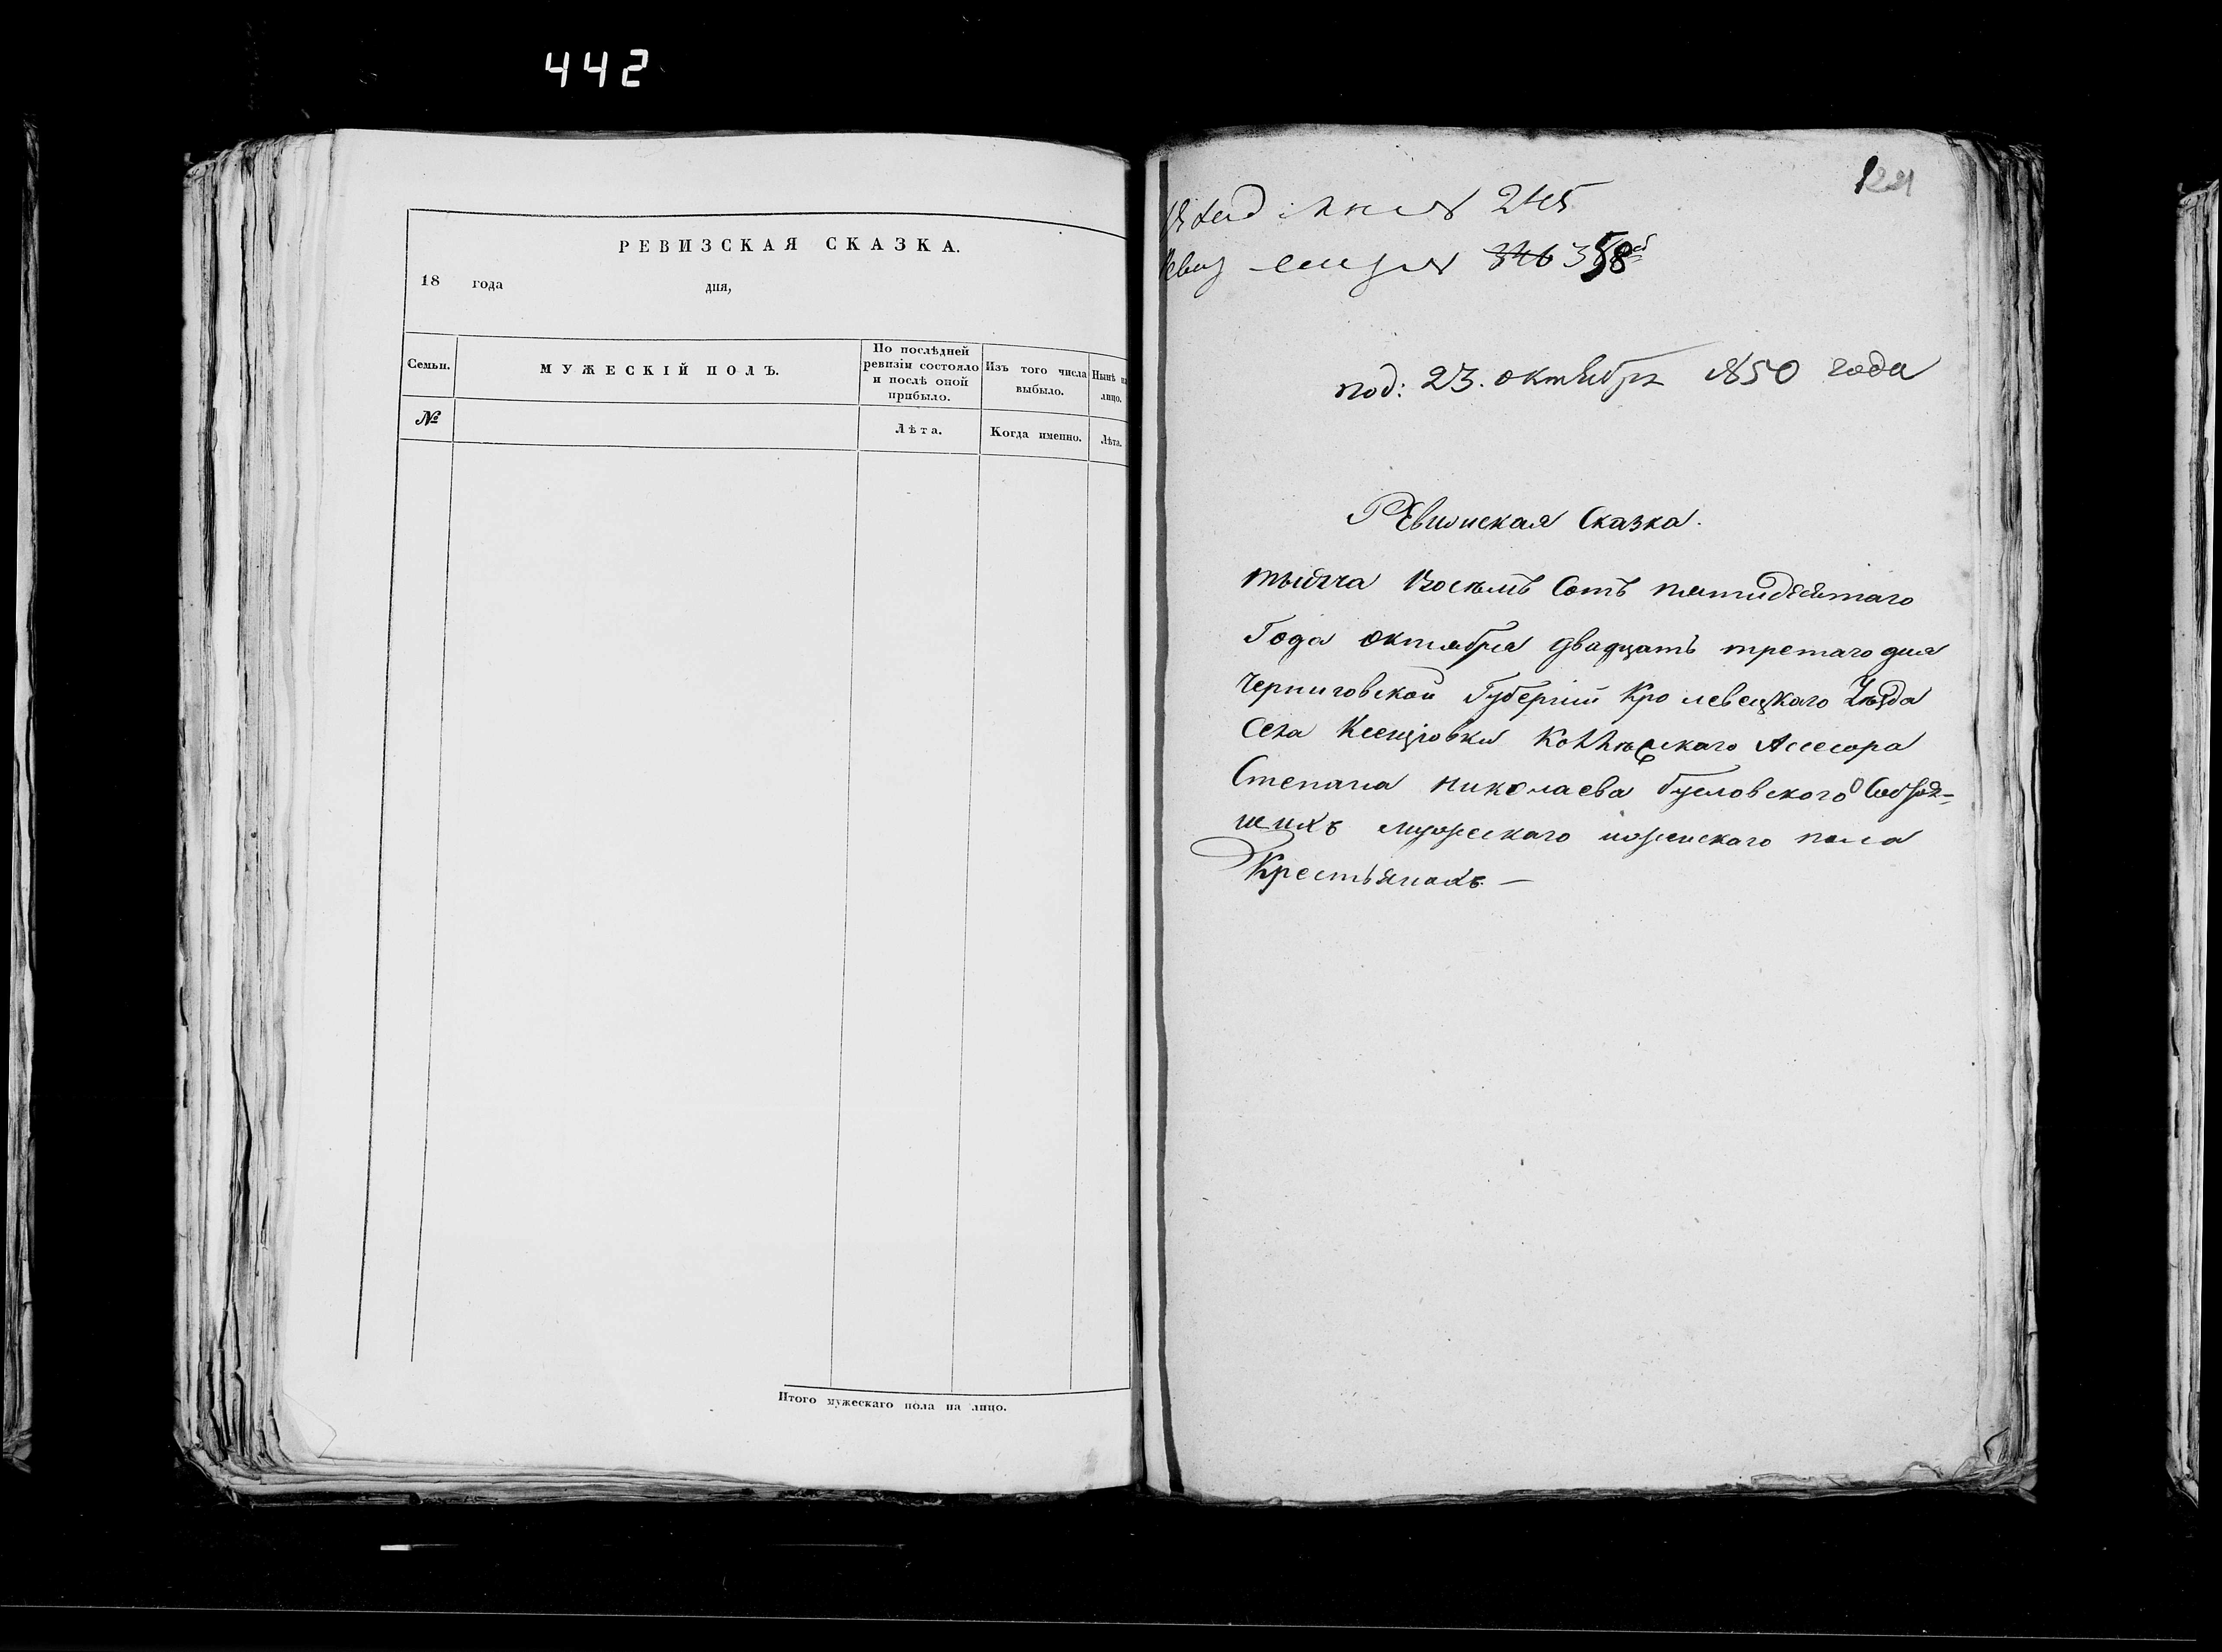 442
РЕВИЗСКАЯ СКАЗКА.
18 года дня,
Семьи.
МУЖЕСКІЙ ПОЛЪ.
По послѣдней
ревизіи состояло
и послѣ оной
прибыло.
Изъ того числа
выбыло.
Нынѣ н
лицо.
№
Лѣта.
Когда именно.
Лѣта.
Итого мужескаго пола на лицо.
245
346 358
под: 23. октября 1850 года
РЕвизская Сказка.
тысяча Восемъ Сотъ пятидесятаго
Года октября двадцать третаго дня
Черниговской Губерніи Кролевецкаго Уѣзда
Села Ксендзовки Коллѣжскаго Ассесора
Степана николаева
мужескаго иженскаго пола
Крестьянахъ —